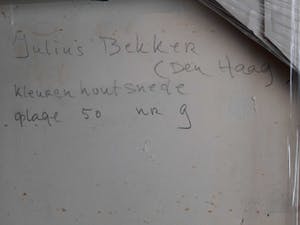 Julius Bekker
(Den Haag
kleurenhoutsnede
oplage 50 nr 9